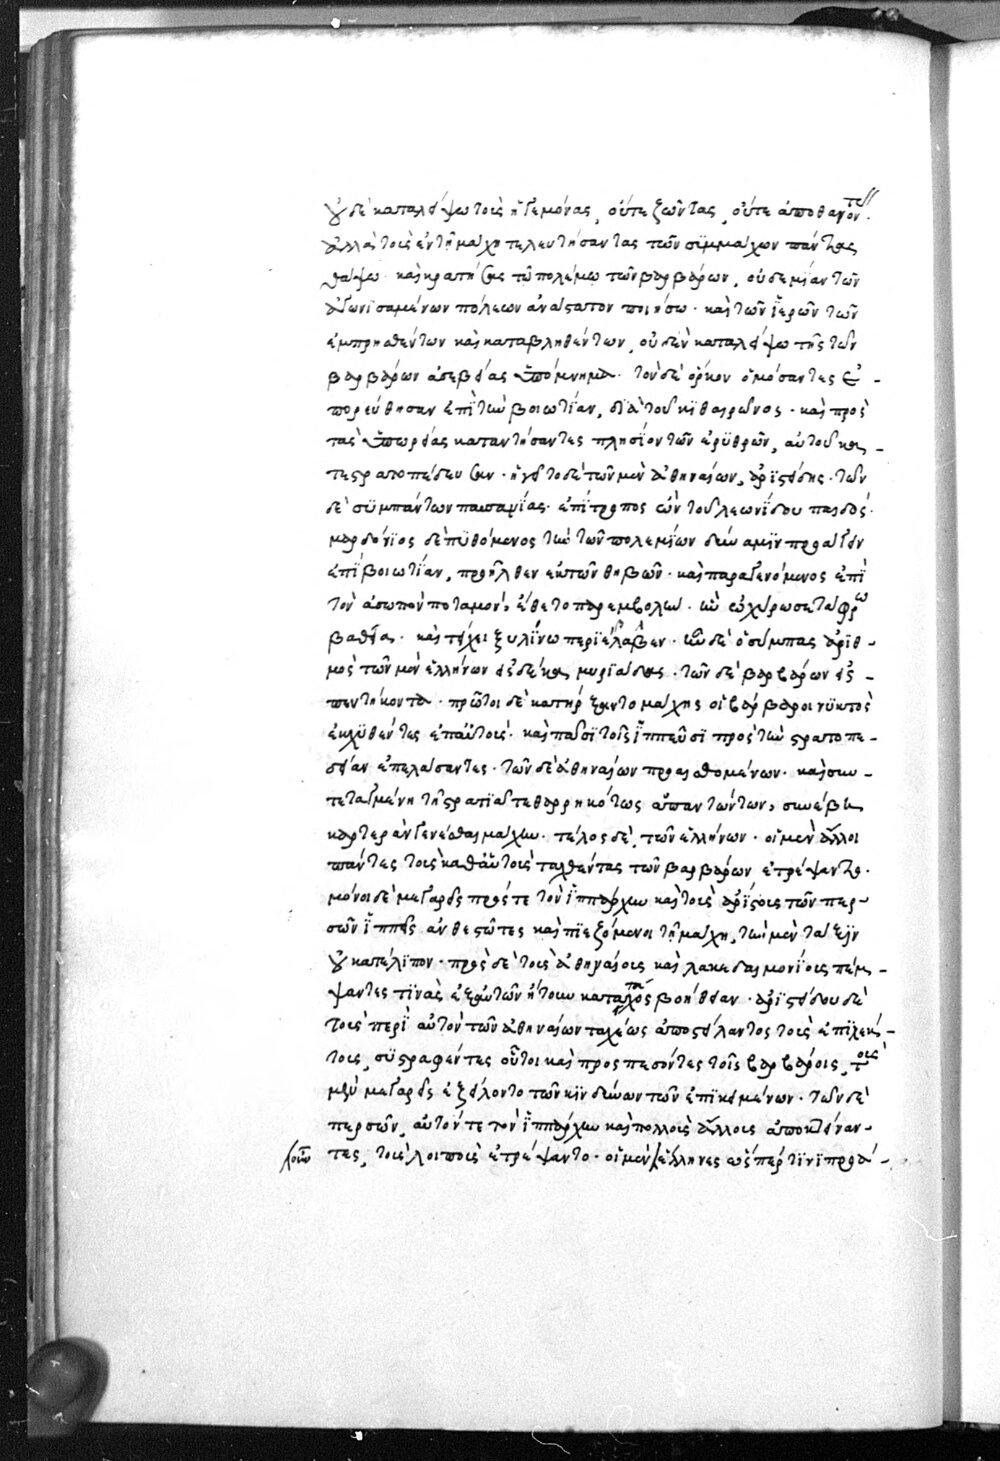 οὐδὲ καταλείψω τοὺς ἡγεμόνας, οὔτε ζῶντας, οὔτε ἀποθανόντας.
ἀλλὰ τοὺς ἐν τῇ μάχη τελευτήσαντας τῶν συμμάχων πάντας
θάψω. καὶ κρατήσας τῶ πολέμω τῶν βαρβάρων, οὐδεμίαν τῶν
ἀγωνισαμένων πόλεων ἀνάστατον ποιήσω. καὶ τῶν ἱερῶν τῶν
ἐμπρησθέντων καὶ καταβληθέντων, οὐδὲν καταλείψω τῆς τῶν
βαρβάρων ἀσεβείας ὑπόμνημα. τὸν δὲ ὅρκον ὀμόσαντες ἐ-
πορεύθησαν ἐπὶ τὴν βοιωτίαν, διὰ τοῦ κιθαιρῶνος. καὶ πρὸς
τὰς ὑπωρείας καταντήσαντες πλησίον τῶν ἐρυθρῶν, αὐτοῦ κα-
τεστρατοπέδευσαν. ἡγεῖτο δὲ τῶν μὲν ἀθηναίων, ἀριστείδης. τῶν
δὲ συμπάντων παυσανίας. ἐπίτροπος ὢν τοῦ λεωνίδου παιδός.
μαρδόνιος δὲ πυθόμενος τὴν τῶν πολεμίων δύναμιν προάγειν
ἐπὶ βοιωτίαν, προῆλθεν ἐκ τῶν θηβῶν. καὶ παραγενόμενος ἐπὶ
τὸν ἀσωπὸν ποταμόν, ἔθετο παρεμβολήν. ἣν ὠχύρωσε τάφρω
βαθεία. καὶ τείχει ξυλίνω περιέλαβεν. ἦν δὲ ὁ σύμπας ἀριθ-
μὸς τῶν μὲν ἑλλήνων εἰς δέκα μυριάδας. τῶν δὲ βαρβάρων εἰς
πεντήκοντα. πρῶτοι δὲ κατήρξαντο μάχης οἱ βάρβαροι νυκτὸς
ἐκχυθέντες ἐπ' αὐτούς. καὶ πᾶσι τοῖς ἱππεῦσι πρὸς τὴν στρατοπε-
δείαν ἐπελάσαντες. τῶν δὲ ἀθηναίων προαισθομένων. καὶ συν-
τεταγμένη τῇ στρατιᾷ τεθαρρηκότως ἀπαντώντων, συνέβη
καρτερὰν γενέσθαι μάχην. τέλος δὲ, τῶν ἑλλήνων. οἱ μὲν ἄλλοι
πάντες τοὺς καθ' αὑτοὺς ταχθέντας τῶν βαρβάρων ἐτρέψαντο.
μόνοι δὲ μεγαρεῖς πρός τε τὸν ἵππαρχον καὶ τοὺς ἀρίστους τῶν περ-
σῶν ἱππεῖς ἀνθεστῶτες καὶ πιεζόμενοι τῇ μάχη, τὴν μὲν τάξιν
οὐ κατέλιπον. πρὸς δὲ τοὺς ἀθηναίους καὶ λακεδαιμονίους πέμ-
ψαντές τινας ἐξ αὑτῶν ᾔτουν κατὰ τάχος βοηθεῖν. ἀριστείδου δὲ
τοὺς περὶ αὐτὸν τῶν ἀθηναίων ταχέως ἀποστείλαντος τοὺς ἐπιλέκ-
τους, συστραφέντες οὗτοι καὶ προσπεσόντες τοῖς βαρβάροις, τοὺς
μὲν μεγαρεῖς ἐξείλοντο τῶν κινδύνων τῶν ἐπικειμένων. τῶν δὲ
περσῶν, αὐτόν τε τὸν ἵππαρχον καὶ πολλοὺς ἄλλους ἀποκτείναν-
τες, τοὺς λοιποὺς ἐτρέψαντο. οἱ μὲν οὖν ἕλληνες ὡσπερεί τινι προα-